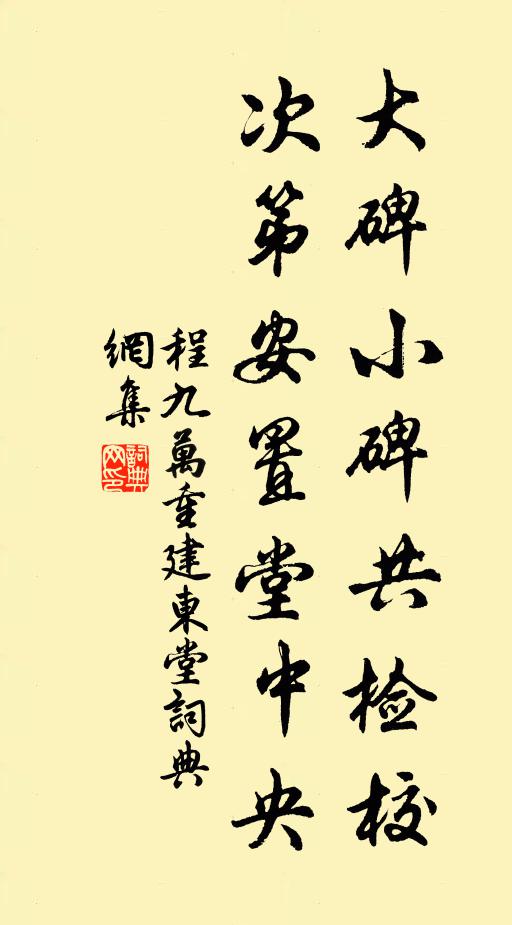 大碑小碑共检校
次第安置堂中央
程九萬重建東堂詞典
網集
詞典
网印